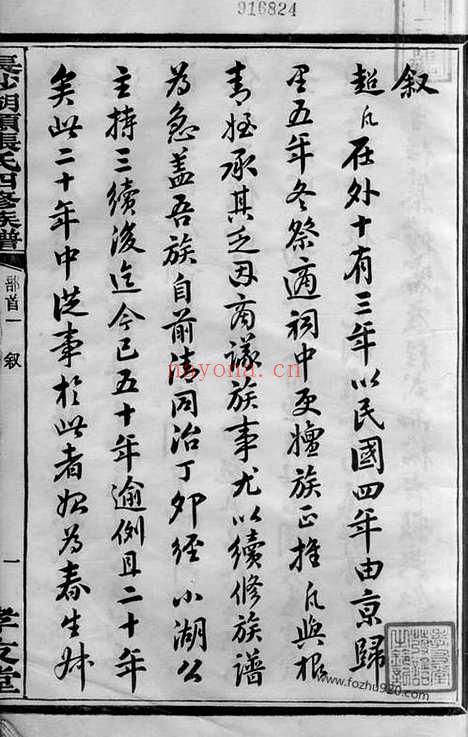 916824
叙
超凡在外十有三年以民國四年由京歸
里五年冬祭適祠中更壇族正推凡與根
青姪承其乏因商議族事尤以續修族譜
為急蓋吾族自前清同治丁卯經小湖公
主持三續後迄今已五十年逾例且二十年
矣此二十年中從事於此者如為春生姊
長沙湖頭張氏四修族譜
部首一
叙
一
孝友堂
nayona.cn
www.fozhu920.com